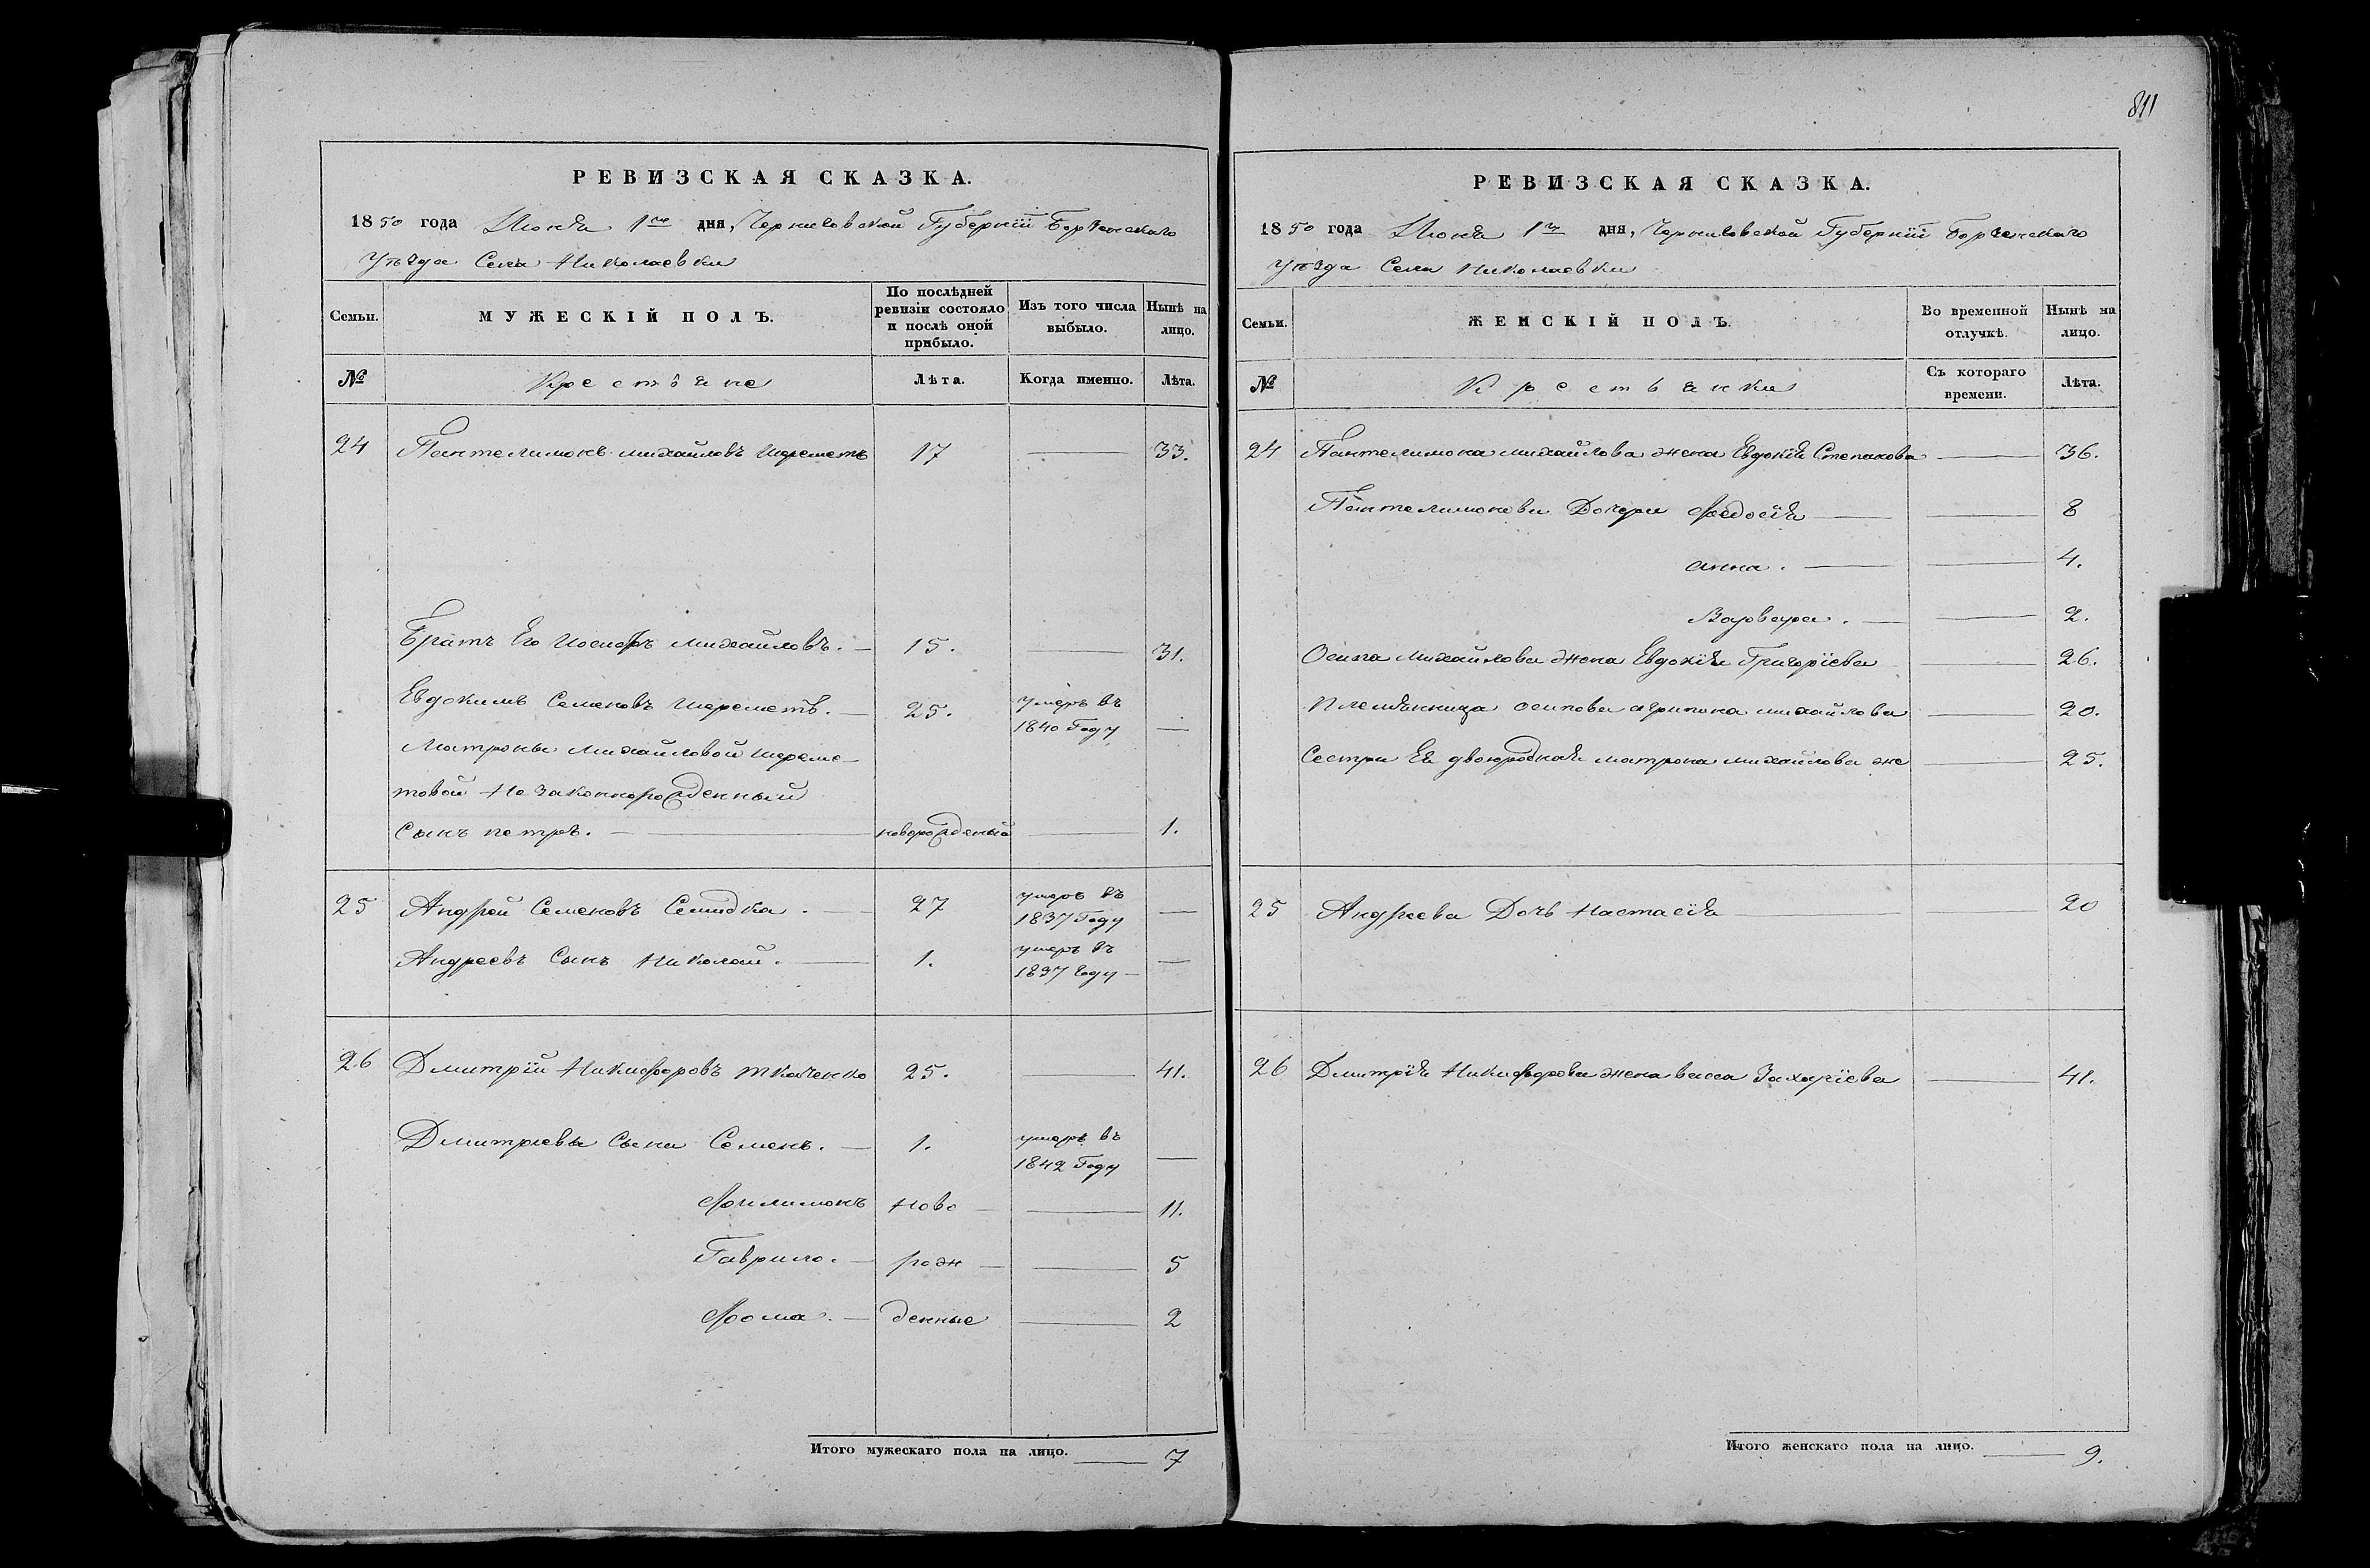 811
РЕВИЗСКАЯ СКАЗКА.
1850 года Июня 1го дня, Черниговской Губерніи Борзенскаго
Уѣзда Села Николаевки
Семьи. МУЖЕСКІЙ ПОЛЪ. По послѣдней ревизіи состояло и послѣ оной прибыло. Изъ того числа выбыло. Нынѣ на лицо.
№ Крестьяне Лѣта. Когда именно. Лѣта.
24 Пантелимонъ Михайловъ Шереметъ 17 — 33.
Братъ Его Иосифъ Михайловъ. — 15. — 31.
Евдокимъ Семеновъ Шереметъ. — 25. умеръ въ
1840 Году —
Матроны Михайловой Шереме-
товой Не Законнорожденный
Сынъ Петръ. — новорожденный — 1.
25 Андрей Семеновъ Семидка. — 27 умеръ въ
1837 Году —
Андреевъ Сынъ Николай. — 1. умеръ въ
1837 Году —
26 Дмитрій Никифоровъ Ткаченко 25. — 41.
Дмитріевы Сыны Семенъ. — 1. умеръ въ
1842 Году —
Филимонъ Ново — 11.
Гаврило. — рож — 5
Фома. — денные — 2
Итого мужескаго пола на лицо. — 7
РЕВИЗСКАЯ СКАЗКА.
1850 года Июня 1го дня, Черниговской Губерніи Борзенскаго
Уѣзда Села Николаевки
Семьи. ЖЕНСКІЙ ПОЛЪ. Во временной отлучкѣ. Нынѣ на лицо.
№ Крестьянки Съ котораго времени. Лѣта.
24 Пантелимона Михайлова жена Евдокія Степанова — 36.
Пантелимонови Дочери Федосія — — 8
Анна. — — 4.
Варвара. — — 2.
Осипа Михайлова жена Евдокія Григоріева — 26.
Племѣнница Осипова Агрипина Михайлова — 20.
Сестра Ея двоюродная Матрона Михайлова же — 25.
25 Андреева Дочь Настасія — — 20
26 Дмитрія Никифорова жена Васса Захаріева — 41.
Итого женскаго пола на лицо. — 9.